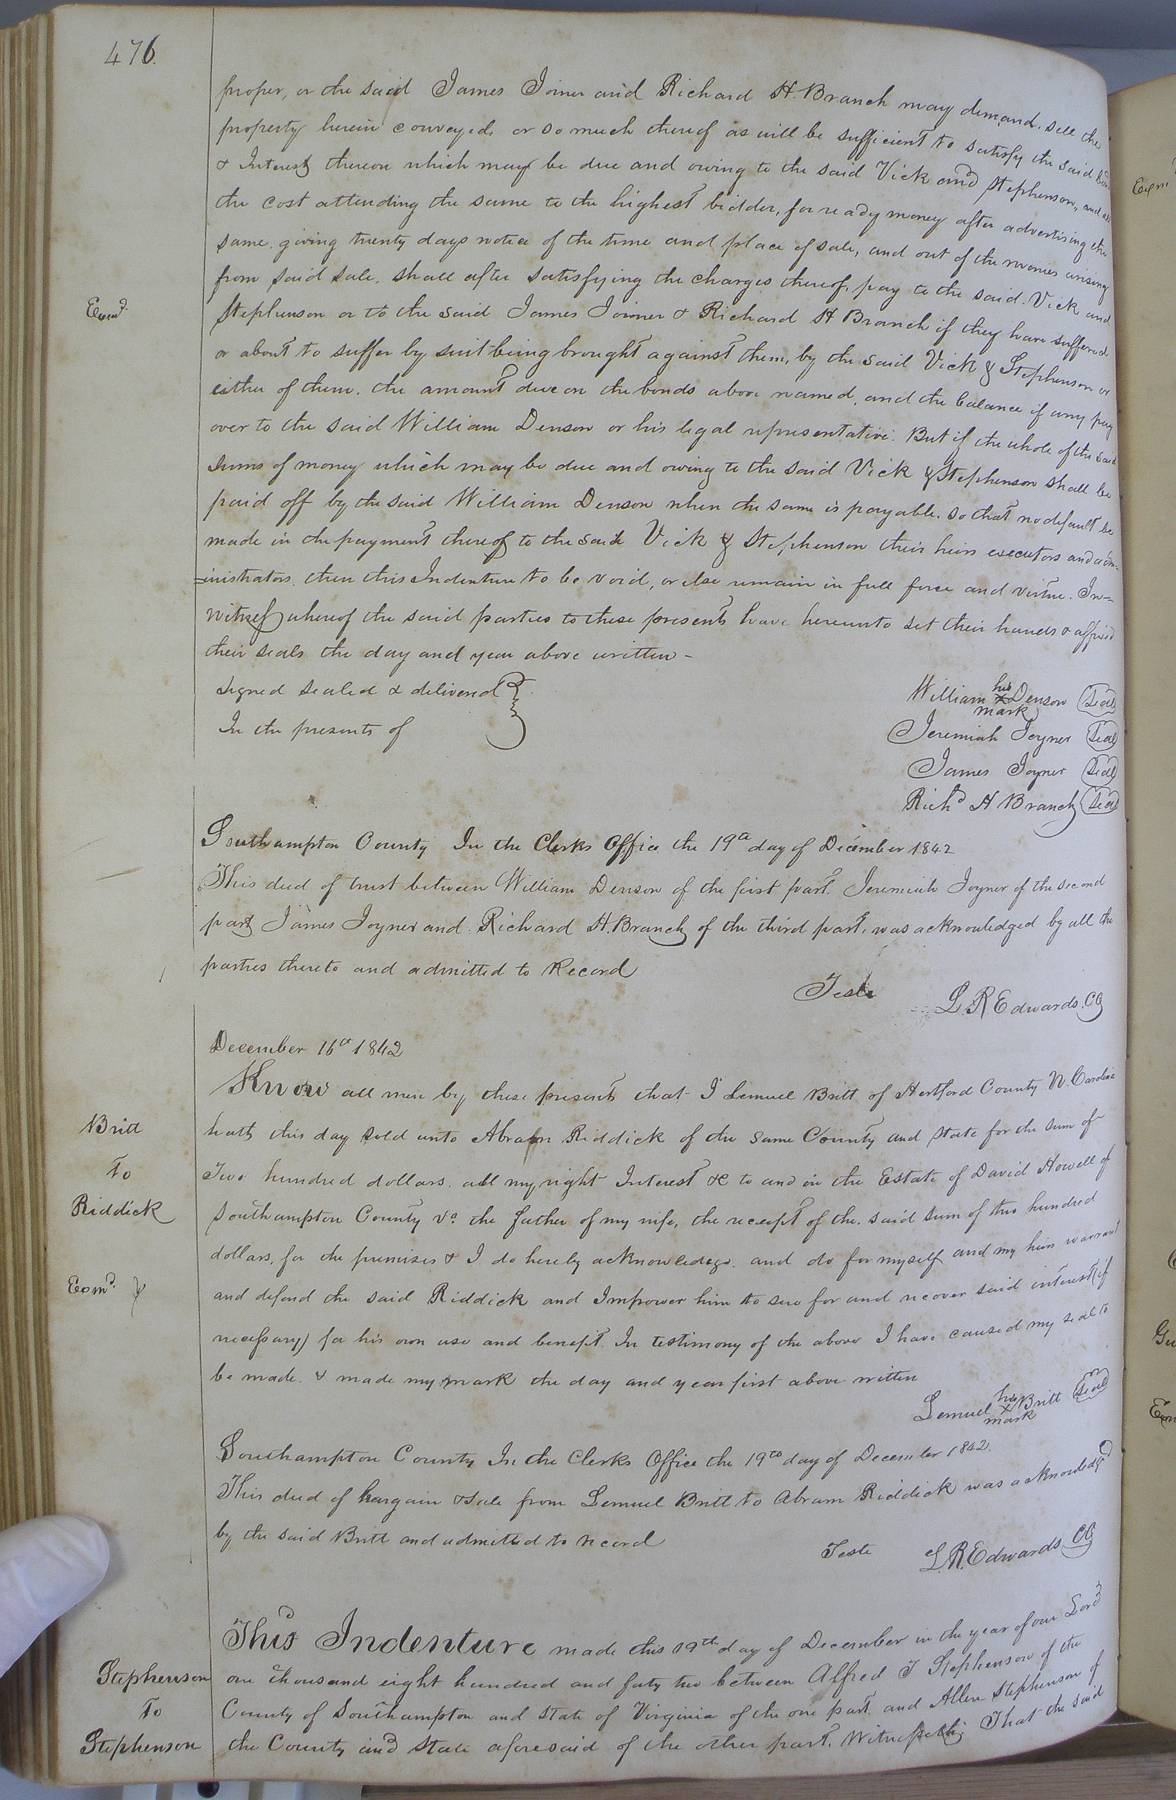 476.
proper, or the said James Joiner and Richard H. Branch may demand, sell the
property herein conveyed, or so much thereof as will be sufficient to satisfy the said
& Interest thereon which may be due and owing to the said Vick and Stephenson, and all
the cost attending the same to the highest bidder, for ready money after advertising the
same, giving twenty days notice of the time and place of sale, and out of the monies arising
from said sale, shall after satisfying the charges thereof, pay to the said Vick and
Exmd.
Stephenson or to the said James Joiner & Richard H Branch if they have suffered
or about to suffer by suit being brought against them, by the said Vick & Stephenson or
either of them, the amount due on the bonds above named, and the balance if any pay
over to the said William Denson or his legal representative. But if the whole of the said
sums of money which may be due and owing to the said Vick & Stephenson shall be
paid off by the said William Denson when the same is payable, so that no default be
made in the payment thereof to the said Vick & Stephenson their heirs executors and adm-
=inistrators, then this Indenture to be void, or else remain in full force and virtue. In=
witness whereof the said parties to these presents have hereunto set their hands & affixed
their seals the day and year above written -
Signed sealed & delivered
In the presents of
William his X mark Denson Seal
Jeremiah Joyner Seal
James Joyner Seal
Richd H Branch Seal
Southampton County In the Clerks Office the 19th day of December 1842
This deed of trust between William Denson of the first part. Jeremiah Joyner of the second
part James Joyner and Richard H. Branch of the third part, was acknowledged by all the
parties thereto and admitted to Record
Teste L. R Edwards. CC
December 16th 1842
Know all men by these presents that I Lemuel Britt of Hertford County N. Carolina
Britt
To
Riddick
hath this day sold unto Abram Riddick of the same County and State for the sum of
Two hundred dollars, all my right Interest &c to and in the Estate of David Howell of
Southampton County Va. the father of my wife, the receipt of the said sum of two hundred
dollars, for the premises & I do hereby acknowledge, and do for myself and my heirs warrant
Exmd.
and defend the said Riddick and Impower him to sue for and recover said interest (if
necessary) for his own use and benefit. In testimony of the above I have caused my seal to
be made, & made my mark the day and year first above written
Lemuel his X mark Britt Seal
Southampton County In the Clerks Office the 19th day of December 1842.
This deed of bargain & sale from Lemuel Britt to Abram Riddick was acknowledged
by the said Britt and admitted to record
Teste L. R. Edwards CC
This Indenture made this 19th day of December in the year of our Lord
Stephenson
To
Stephenson
one thousand eight hundred and forty two between Alfred J Stephenson of the
County of Southampton and State of Virginia of the one part and Allen Stephenson of
the County and State aforesaid of the other part. Witnesseth; That the said